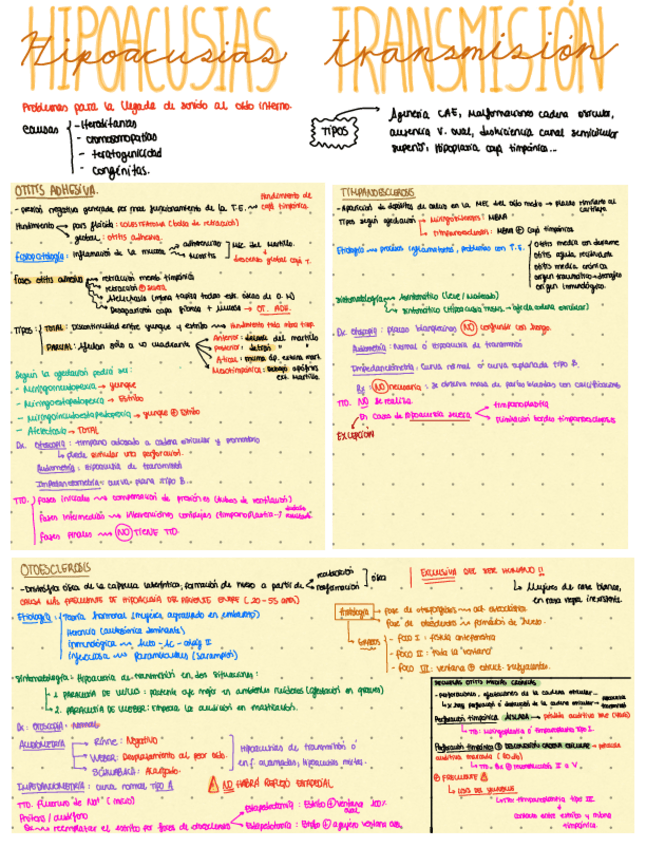 HIPOACUSIAS TRANSMISIÓN
Hipoacusias transmisión
Problemas para la llegada de sonido al oído interno.
causas
- Hereditarias
- cromosomopatías
- teratogenicidad
- congénitas.
TIPOS
Agenesia CAE, malformaciones cadena osicular,
ausencia V. oval, dehiscencia canal semicircular
superior, hipoplasia caja timpánica...
OTITIS ADHESIVA.
- Presión negativa generada por mal funcionamiento de la T.E.
hundimiento de
caja timpánica.
Hundimiento
pars flácida: COLESTEATOMA (bolsa de retracción)
global: otitis adhesiva.
Fisiopatología: inflamación de la mucosa
adherencias
necrosis
MEC del martillo.
descenso global caja T.
Fases otitis adhesiva
retracción memb timpánica
retracción severa
Atelectasia
Desaparición caja
OT. ADH.
Tipos:
TOTAL: Discontinuidad entre yunque y estribo
PARCIAL: Afectan sólo a un cuadrante
Anterior: delante del martillo
Posterior: detrás "
Según la afectación podrá ser:
- Miringoincudopexia → yunque
- Miringoestapedopexia → Estribo
- Miringoincudoestapedopexia → yunque + Estribo
- Atelectasia → TOTAL
Dx. Otoscopia: tímpano adosado a cadena osicular y promontorio
puede simular una perforación.
Audiometría: hipoacusia de transmisión
Impedanciometría: curva plana TIPO B...
TTO.
Fases iniciales → compensación de presiones (tubos de ventilación)
Fases intermedias → intervenciones complejas (timpanoplastia...)
Fases finales → NO TIENE TTO.
TIMPANOESCLEROSIS
- Aparición de depósitos de calcio en la MEC del oído medio → placas similares al
cartílago
Tipos según afectación
Miringoesclerosis: MEMB
Timpanoesclerosis: MEMB + caja timpánica
Etiología → procesos inflamatorios, problemas con T.E.
Otitis media con derrame
otitis aguda recidivante
otitis media crónica
origen traumático → drenajes
origen inmunológico.
Sintomatología
Asintomático (leve / moderado)
Sintomático (Hipoacusia trans. → afecta cadena osicular)
Dx. Otoscopio: placas blanquecinas NO confundir con hongo.
Audiometría: Normal o hipoacusia de transmisión
Impedanciometría, curva normal o curva aplanada tipo B.
Rx: NO necesaria: se observa masa de partes blandas con calcificaciones
TTO. NO se realiza.
EXCEPCIÓN
En casos de hipoacusia severa
timpanoplastia
Eliminación bordes timpanoesclerosis
OTOESCLEROSIS
- Distrofia ósea de la cápsula laberíntica, formación de hueso a partir de
reabsorción
neoformación
ósea
EXCLUSIVA DEL SER HUMANO!!
Mujeres de raza blanca,
en raza negra inexistente.
CAUSA MÁS FRECUENTE DE HIPOACUSIA DEL PACIENTE JOVEN (20-55 años)
Etiología:
Teoría hormonal (mujeres, agravado en embarazo)
Herencia (autosómica dominante)
Inmunológica → Auto-Ac - colág II
Infecciosa → Paramixovirus (sarampión)
Histología
Fase de otospongiosis → act osteoclástica
Fase de otoesclerosis → formación de hueso.
GRADOS
- FOCO I: fístula antefenestra
- FOCO II: toda la ventana
- FOCO III: ventana + estruct. subyacentes.
Sintomatología: Hipoacusia de transmisión en dos situaciones:
1. PARACUSIA DE WILLIS: paciente oye mejor en ambientes ruidosos (afectación en graves)
2. PARACUSIA DE WEBER: empeora la audición en masticación.
Dx: OTOSCOPIA: Normal
AUDIOMETRÍA
Rinne: Negativo
WEBER: Desplazamiento al peor oído.
SCHWABACH: Alargado.
Hipoacusias de transmisión o
en f. avanzadas, hipoacusia mixta.
IMPEDANCIOMETRÍA: curva normal TIPO A
NO HABRÁ REFLEJO ESTAPEDIAL
TTO. Fluoruro de Na+ (inicio)
Prótesis / audífono
Estapedectomía: Estribo + ventana oval
Estapedotomía: Estribo + agujero ventana oval
SECUELAS OTITIS MEDIAS CRÓNICAS
- Perforaciones, afectaciones de la cadena osicular...
Perforación timpánica AISLADA → pérdida auditiva leve
TTO: Miringoplastia o timpanoplastia tipo I.
Perforación timpánica + desconexión cadena osicular → pérdida
auditiva marcada
+ FRECUENTE
LISIS DEL YUNQUE
TTO: timpanoplastia tipo III
contacto entre estribo y memb
timpánica.